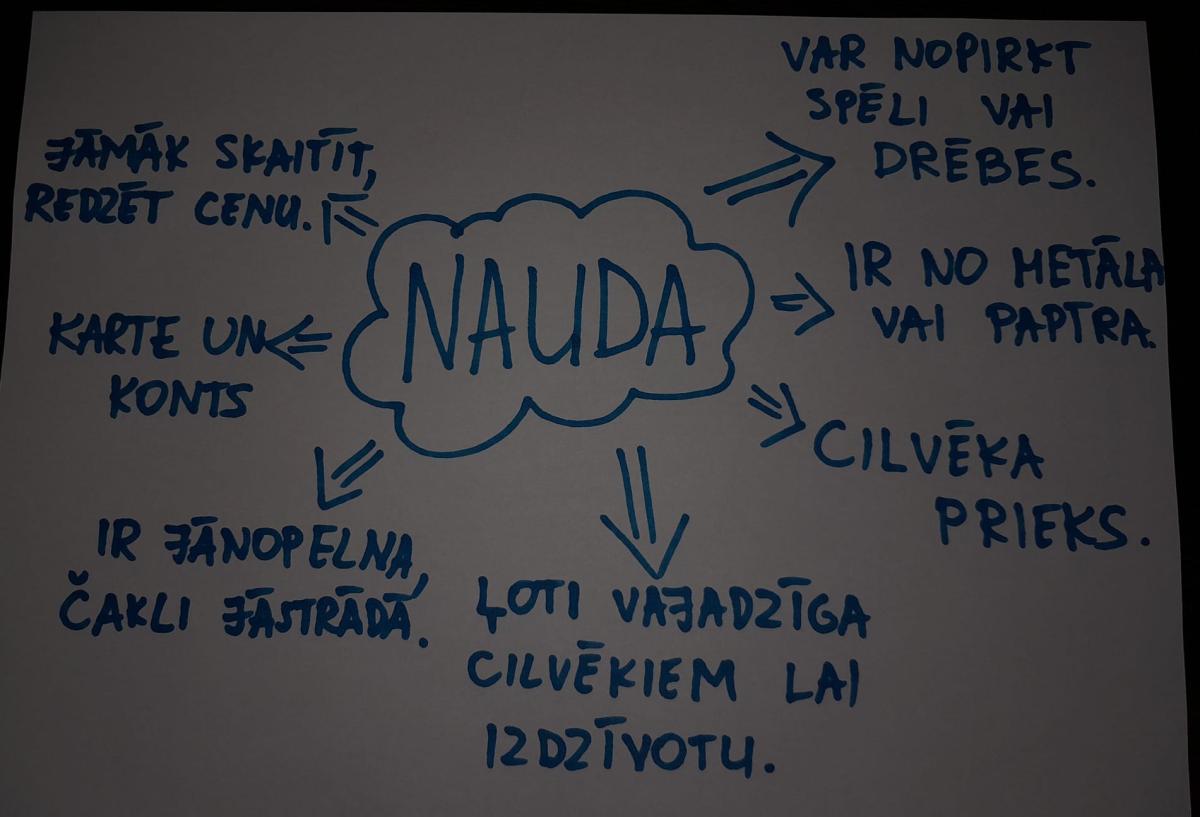 NAUDA
VAR NOPIRKT
SPĒLI VAI
DRĒBES.
IR NO METĀLA
VAI PAPTRA.
CILVĒKA
PRIEKS.
ĻOTI VAJADZĪGA
CILVĒKIEM LAI
IZDZĪVOTU.
IR JĀNOPELNA,
ČAKLI JĀSTRĀDĀ.
KARTE UN
KONTS
JĀMĀK SKAITĪT,
REDZĒT CENU.